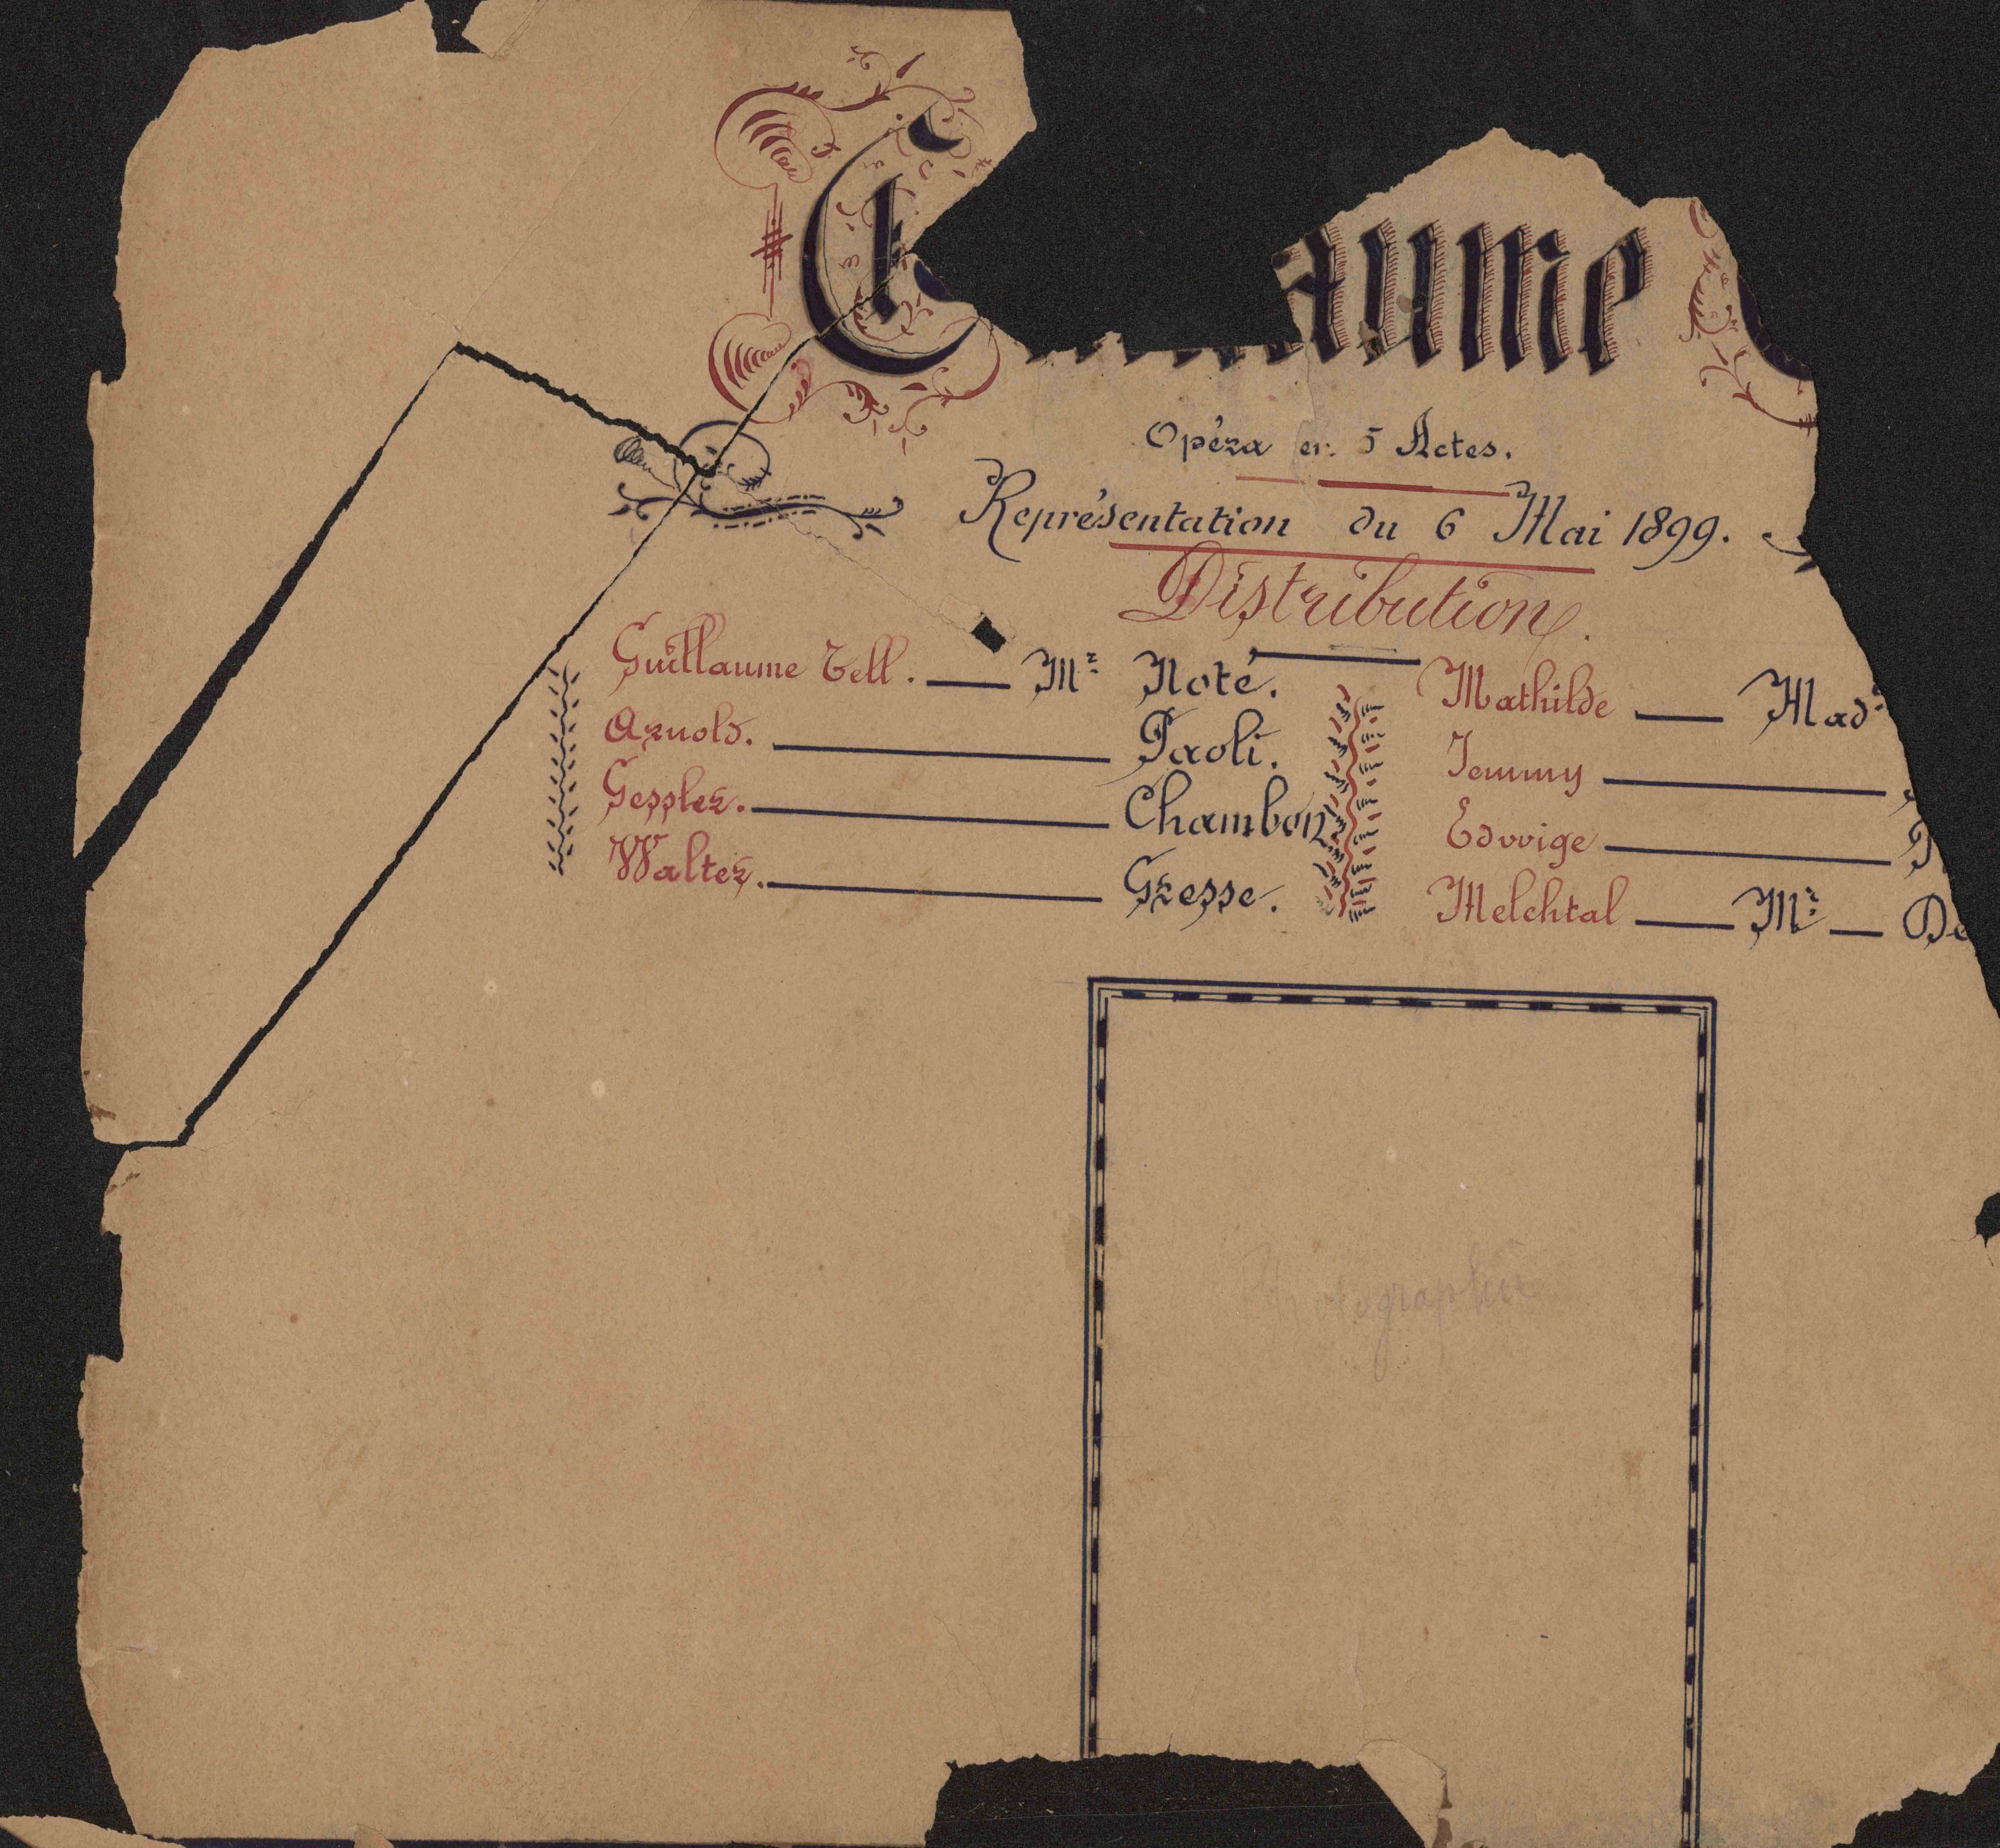 G aume
Opéra en 5 Actes.
Représentation du 6 Mai 1899.
Distribution.
Guillaume Tell. — Mr Noté.
Arnold. — Paoli.
Gessler. — Chambon
Walter. — Gresse.
Mathilde — Mad
Jemmy —
Edwige —
Melchtal — Mr — De
Photographie